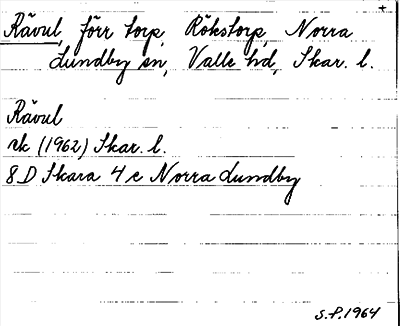 Rävul, förr torp, Rökstorp, Norra
Lundby sn, Valle hd, Skar. l.
Rävul
rk (1962) Skar. l.
8 D Skara 4 e Norra Lundby
S.P. 1964